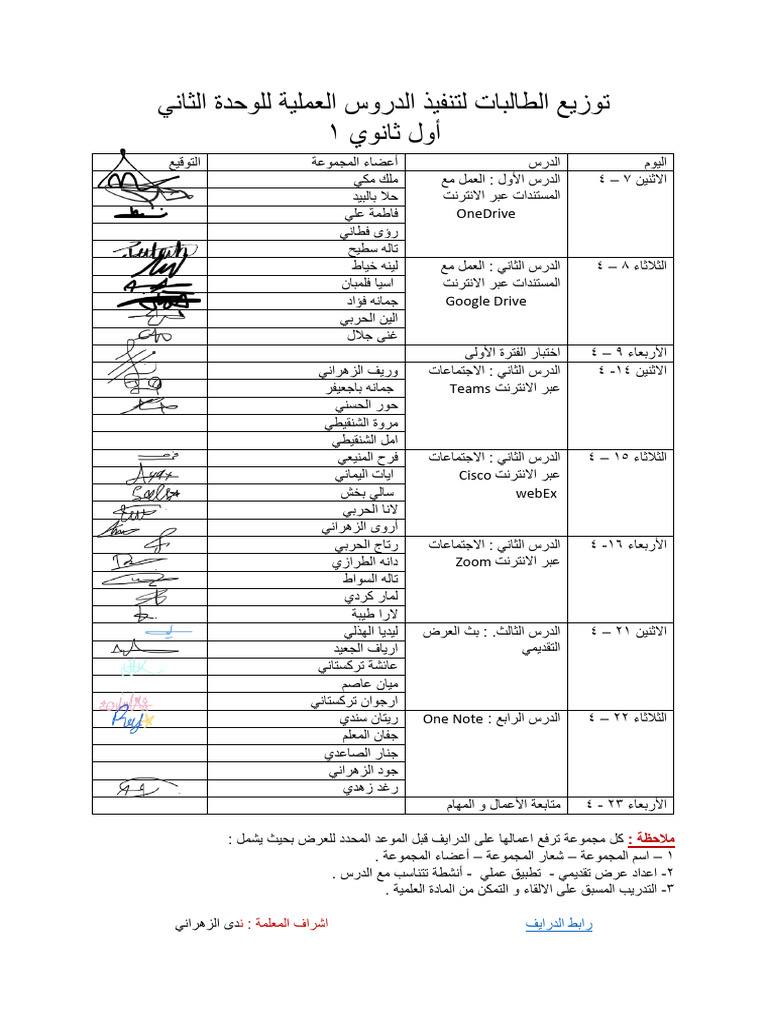 توزيع الطالبات لتنفيذ الدروس العملية للوحدة الثاني
أول ثانوي ١
اليوم الدرس أعضاء المجموعة التوقيع
الاثنين ٧ – ٤ الدرس الأول : العمل مع ملك مكي
المستندات عبر الانترنت حلا بالبيد
OneDrive فاطمة علي
رؤى فطاني
تاله سطيح
الثلاثاء ٨ – ٤ الدرس الثاني : العمل مع لينه خياط
المستندات عبر الانترنت اسيا فلمبان
Google Drive جمانه فؤاد
الين الحربي
غنى جلال
الأربعاء ٩ – ٤ اختبار الفترة الأولى
الاثنين ١٤- ٤ الدرس الثاني : الاجتماعات وريف الزهراني
عبر الانترنت Teams جمانه باجعيفر
حور الحسني
مروة الشنقيطي
امل الشنقيطي
الثلاثاء ١٥ – ٤ الدرس الثاني : الاجتماعات فرح المنيعي
عبر الانترنت Cisco ايات اليماني
webEx سالي بخش
لانا الحربي
أروى الزهراني
الأربعاء ١٦- ٤ الدرس الثاني : الاجتماعات رتاج الحربي
عبر الانترنت Zoom دانه الطرازي
تاله السواط
لمار كردي
لارا طيبة
الاثنين ٢١ – ٤ الدرس الثالث. : بث العرض ليديا الهذلي
التقديمي ارياف الجعيد
عائشة تركستاني
ميان عاصم
ارجوان تركستاني
الثلاثاء ٢٢ – ٤ الدرس الرابع : One Note ريتان سندي
جفان المعلم
جنار الصاعدي
جود الزهراني
رغد زهدي
الأربعاء ٢٣ - ٤ متابعة الأعمال و المهام
ملاحظة : كل مجموعة ترفع اعمالها على الدرايف قبل الموعد المحدد للعرض بحيث يشمل :
١ – اسم المجموعة – شعار المجموعة – أعضاء المجموعة .
٢- اعداد عرض تقديمي - تطبيق عملي - أنشطة تتناسب مع الدرس .
٣- التدريب المسبق على الالقاء و التمكن من المادة العلمية .
رابط الدرايف اشراف المعلمة : ندى الزهراني